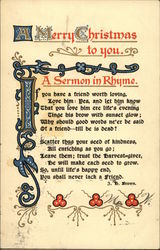 A Merry Christmas
to you.
A Sermon in Rhyme.
If you have a friend worth loving,
Love him: Yea, and let him know
That you love him ere life's evening
Tinge his brow with sunset glow;
Why should good words ne'er be said
Of a friend—till he is dead?
Scatter thus your seed of kindness,
All enriching as you go;
Leave them; trust the Harvest-giver,
He will make each seed to grow.
So, until life's happy end,
You shall never lack a Friend.
Brown.